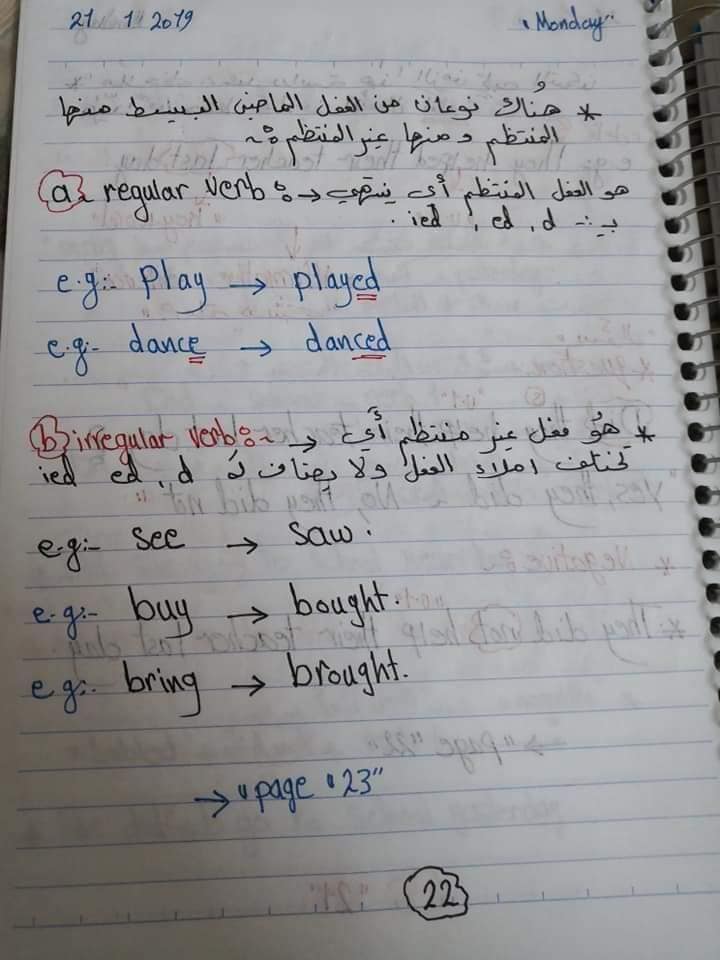 21 1 2019 Monday
* هناك نوعان من الفعل الماضي البسيط منها
المنتظم ومنها غير المنتظم :~
a~ regular verb :~→ هو الفعل المنتظم أي ينتهي
بـ :- ied , ed , d .
e.g:- play → played
e.g:- dance → danced
b irregular verb:~ → * هُو فعل غير منتظم أي
تختلف املاء الفعل ولا يضاف لـ ied ed , d
e.g:- see → saw.
e.g:- buy → bought.
e.g:- bring → brought.
→ "page "23"
22